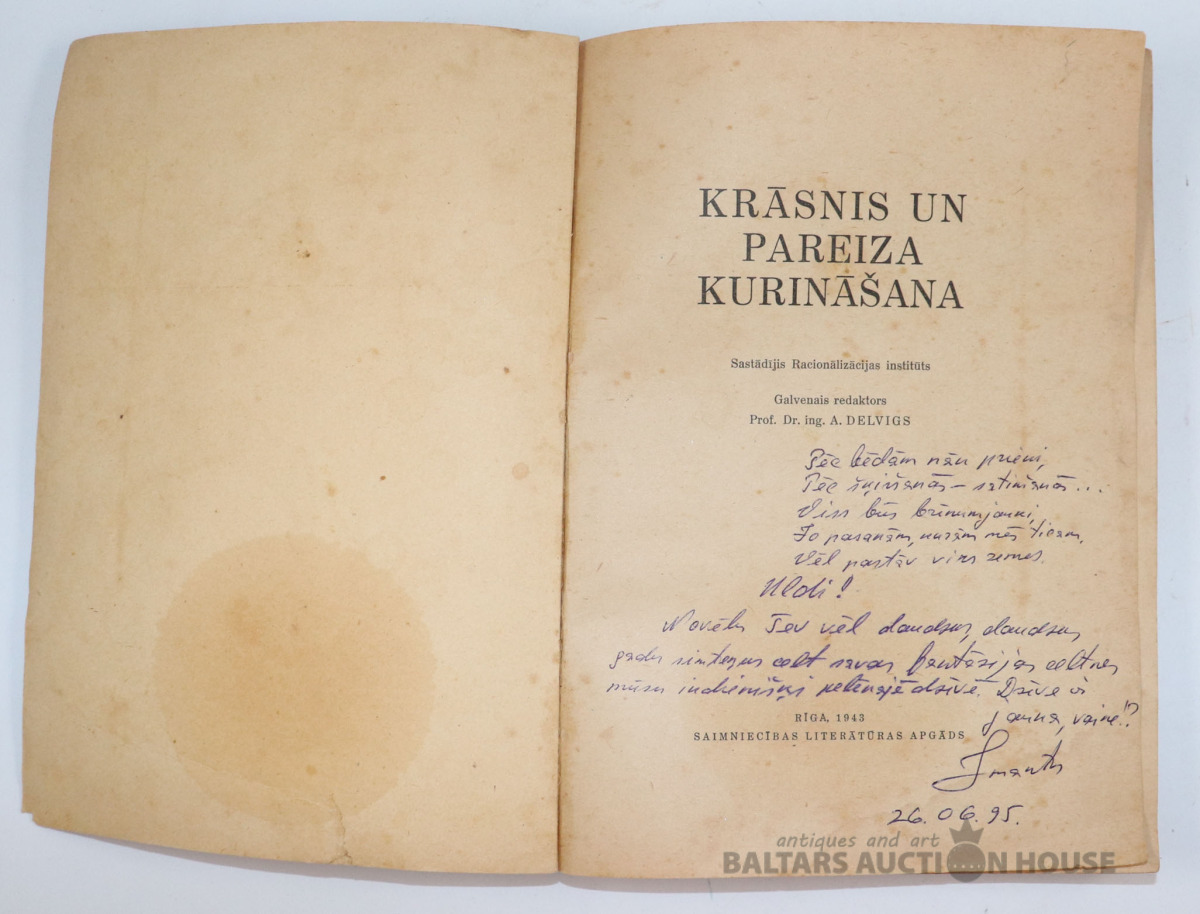 KRĀSNIS UN
PAREIZA
KURINĀŠANA
Sastādījis Racionālizācijas institūts
Galvenais redaktors
Prof. Dr. ing. A. DELVIGS
Pēc bēdām nāk prieki,
Pēc šķiršanās – satikšanās...
Viss būs brīnumjauki,
Jo pasakām, kurām mēs ticam,
Vēl pastāv virs zemes.
Uldi!
Novēlu Tev vēl daudzus, daudzus
gadu simteņus celt savas fantāzijas celtnes
mūsu dzīvē. Dzīve ir
jauka, vai ne!?
RĪGA, 1943
SAIMNIECĪBAS LITERĀTŪRAS APGĀDS
Imants
26.06.95.
antiques and art
BALTARS AUCTION HOUSE